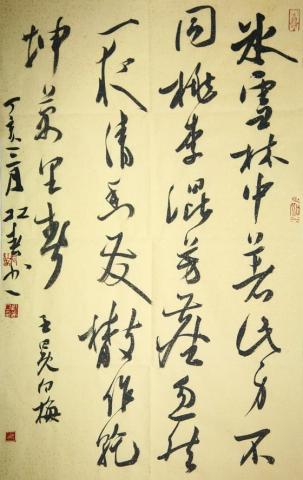 冰雪林中著此身不
同桃李混芳尘忽然
一夜清香发散作乾
坤万里春
王冕白梅
丁亥三月